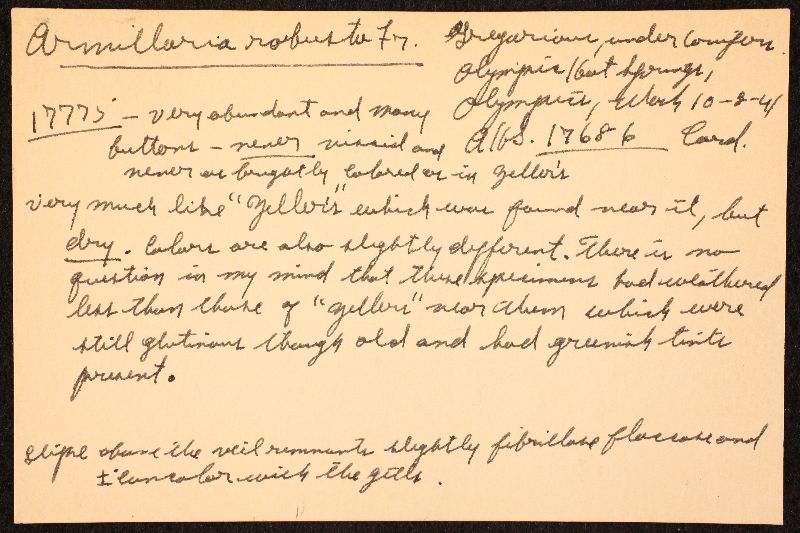 Armillaria robusta Fr.
Gregarious, under conifers
Olympic Hot Springs,
Olympics, Wash 10-2-41
AHS. 17686 Card.
17775 - very abundant and many
buttons - never viscid and
never as brightly colored as in zelleri
very much like "Zelleri" which was found near it, but
dry. Colors are also slightly different. There is no
question in my mind that these specimens had weathered
less than those of "zelleri" near them which were
still glutinous though old and had greenish tints
present.
stipe above the veil remnants slightly fibrillose floccose and
± concolor with the gills.